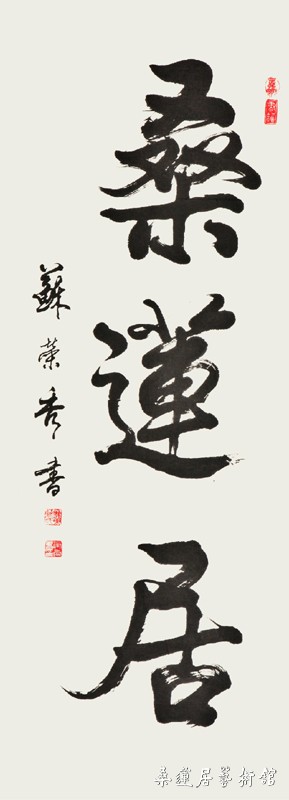 桑蓮居
蘇榮秀書
桑蓮居藝術館